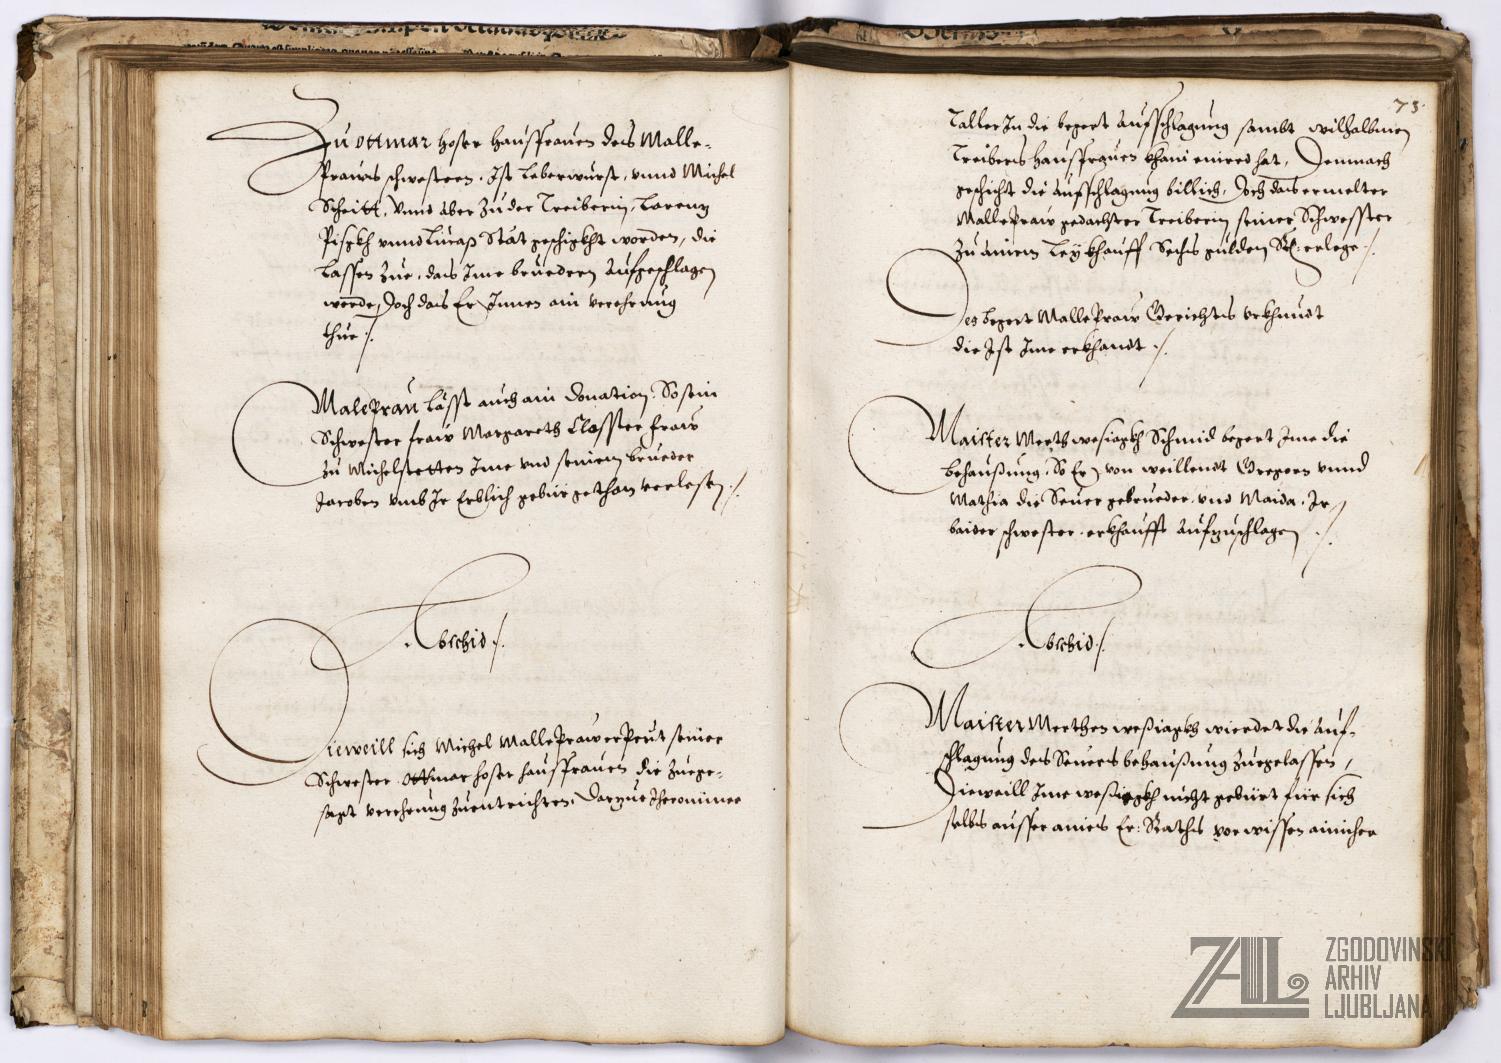 Zu Ottmar Hoser Hausfrauen des Malle-
Prawes schwestern. Ist Leberwurst, vnnd Michel
Scheitt, Vnnd aber Zu der Treiberin, Lorenz
vnnd Lucaß Stat geschigkht worden, die
Lassen Zue, das Ime bruedern Aufgeschlagen
werde, doch das Er Innen ain verehrung
thue ./.
MalePrau Lässt auch ain donation, So sein
Schwester fraw Margareth Closster Fraw
Zu Michelstetten Ime vnd seinem brueder
Jacoben vmb Ir Erblich gebür gethan verlesen ./.
Abschid ./.
Dieweill sich Michel MallePrawer seiner
Schwester Ottmar Hoser hausfrauen die Zuege-
sagt verehrung Zuentrichten, Dartzue Iheronimus
73.
Taller In die begert Aufschlagung sambt wilhalbmen
Treibers Hausfrauen khain einred hat, Demnach
geschicht die Aufschlagung billich, Doch das ermelter
MallePraw gedachter Treiberin seiner Schwesster
Zu ainem Leykhauff Sechs gulden R: erlege ./.
Des begert MallePraw Gerichts vrkhundt
die Ist Ime erkhandt ./.
Maister Merth Schmid begert Ime die
behaußung, So Er von weillendt Gregorn vnnd
Mathia die Seuer gebrueder, vnd Maida, Ir
baider schwester erkhaufft Aufzuschlagen ./.
Abschid ./.
Maister Merthen wierdet die Auf-
schlagung des Seuers behaußung Zuegelassen,
Dieweill Ime nicht gebürt für sich
selbs ausser aines Er: Raths vorwissen ainicher
ZAL ZGODOVINSKI
ARHIV
LJUBLJANA